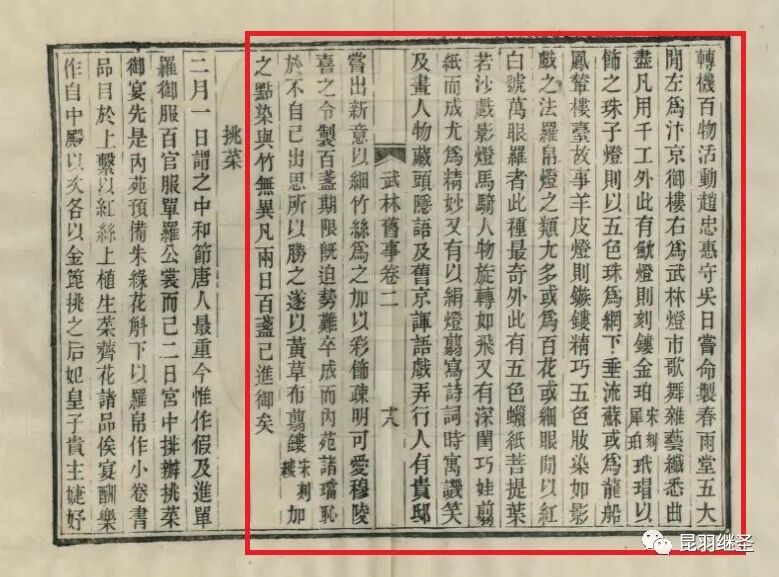 轉機百物活動趙忠惠守吳日嘗命製春雨堂五大
閒左爲汴京御樓右爲武林燈市歌舞雜藝纖悉曲
盡凡用千工外此有魫燈則刻鏤金珀宋刻犀珀玳瑁以
飾之珠子燈則以五色珠爲網下垂流蘇或爲龍船
鳳輦樓臺故事羊皮燈則鏃鏤精巧五色妝染如影
戲之法羅帛燈之類尤多或爲百花或細眼閒以紅
白號萬眼羅者此種最奇外此有五色蠟紙菩提葉
若沙戲影燈馬騎人物旋轉如飛又有深閨巧娃翦
紙而成尤爲精妙又有以絹燈翦寫詩詞時寓譏笑
及畫人物藏頭隱語及舊京諢語戲弄行人有貴邸
武林舊事卷二 十八
嘗出新意以細竹絲爲之加以彩飾疎明可愛穆陵
喜之令製百盞期限旣迫勢難卒成而內苑諸璫恥
於不自己出思所以勝之遂以黃草布翦鏤宋刻加
之點染與竹無異凡兩日百盞已進御矣
挑菜
二月一日謂之中和節唐人最重今惟作假及進單
羅御服百官服單羅公裳而已二日宮中排辦挑菜
御宴先是內苑預備朱綠花斛下以羅帛作小卷書
品目於上繫以紅絲上植生菜薺花諸品俟宴酬樂
作自中殿以次各以金篦挑之后妃皇子貴主婕妤
昆羽继圣